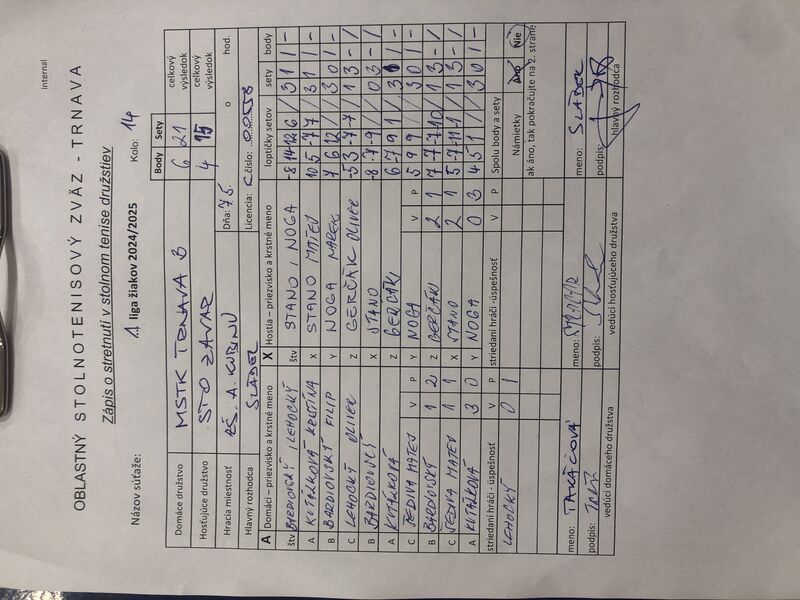 Internal
OBLASTNÝ STOLNOTENISOVÝ ZVÄZ - TRNAVA
Zápis o stretnutí v stolnom tenise družstiev
Názov súťaže: 1 liga žiakov 2024/2025 Kolo: 14
Body Sety
Domáce družstvo MSTK TRNAVA B 6 21 celkový výsledok
Hosťujúce družstvo STO ZAVAR 4 15 celkový výsledok
Hracia miestnosť ZŠ. A. KUBINU Dňa: 7.5. o hod.
Hlavný rozhodca SLÁDEK Licencia: C číslo:
A Domáci – priezvisko a krstné meno X Hostia – priezvisko a krstné meno loptičky setov sety body
štv BARDIOVSKÝ / LEHOCKÝ štv STANO / NOGA -8 14 12 6 3 1 1 -
A KUTÁLKOVÁ KRISTÍNA X STANO MATEJ 10 5 -7 7 3 1 1 -
B BARDIOVSKÝ FILIP Y NOGA MAREK 7 6 12 3 0 1 -
C LEHOCKÝ OLIVER Z GERČÁK OLIVER -5 3 -7 -7 1 3 - 1
B BARDIOVSKÝ X STANO -8 -7 -9 0 3 - 1
A KUTÁLKOVÁ Z GERČÁK 6 -7 9 1 3 1 1 -
C MATEJ Y NOGA 5 9 9 3 0 1 -
B BARDIOVSKÝ 1 2 Z GERČÁK 2 1 7 -7 -7 -10 1 3 - 1
C MATEJ 1 1 X STANO 2 1 5 -7 -11 -1 1 3 - 1
A KUTÁLKOVÁ 3 0 Y NOGA 0 3 4 5 1 3 0 1 -
striedaní hráči - úspešnosť V P striedaní hráči -úspešnosť V P Spolu body a sety
LEHOCKÝ 0 1
Námietky Áno Nie
ak áno, tak pokračujte na 2. strane
meno: TAKÁČOVÁ meno: meno: SLÁDEK
podpis: podpis: podpis:
vedúci domáceho družstva vedúci hosťujúceho družstva hlavný rozhodca